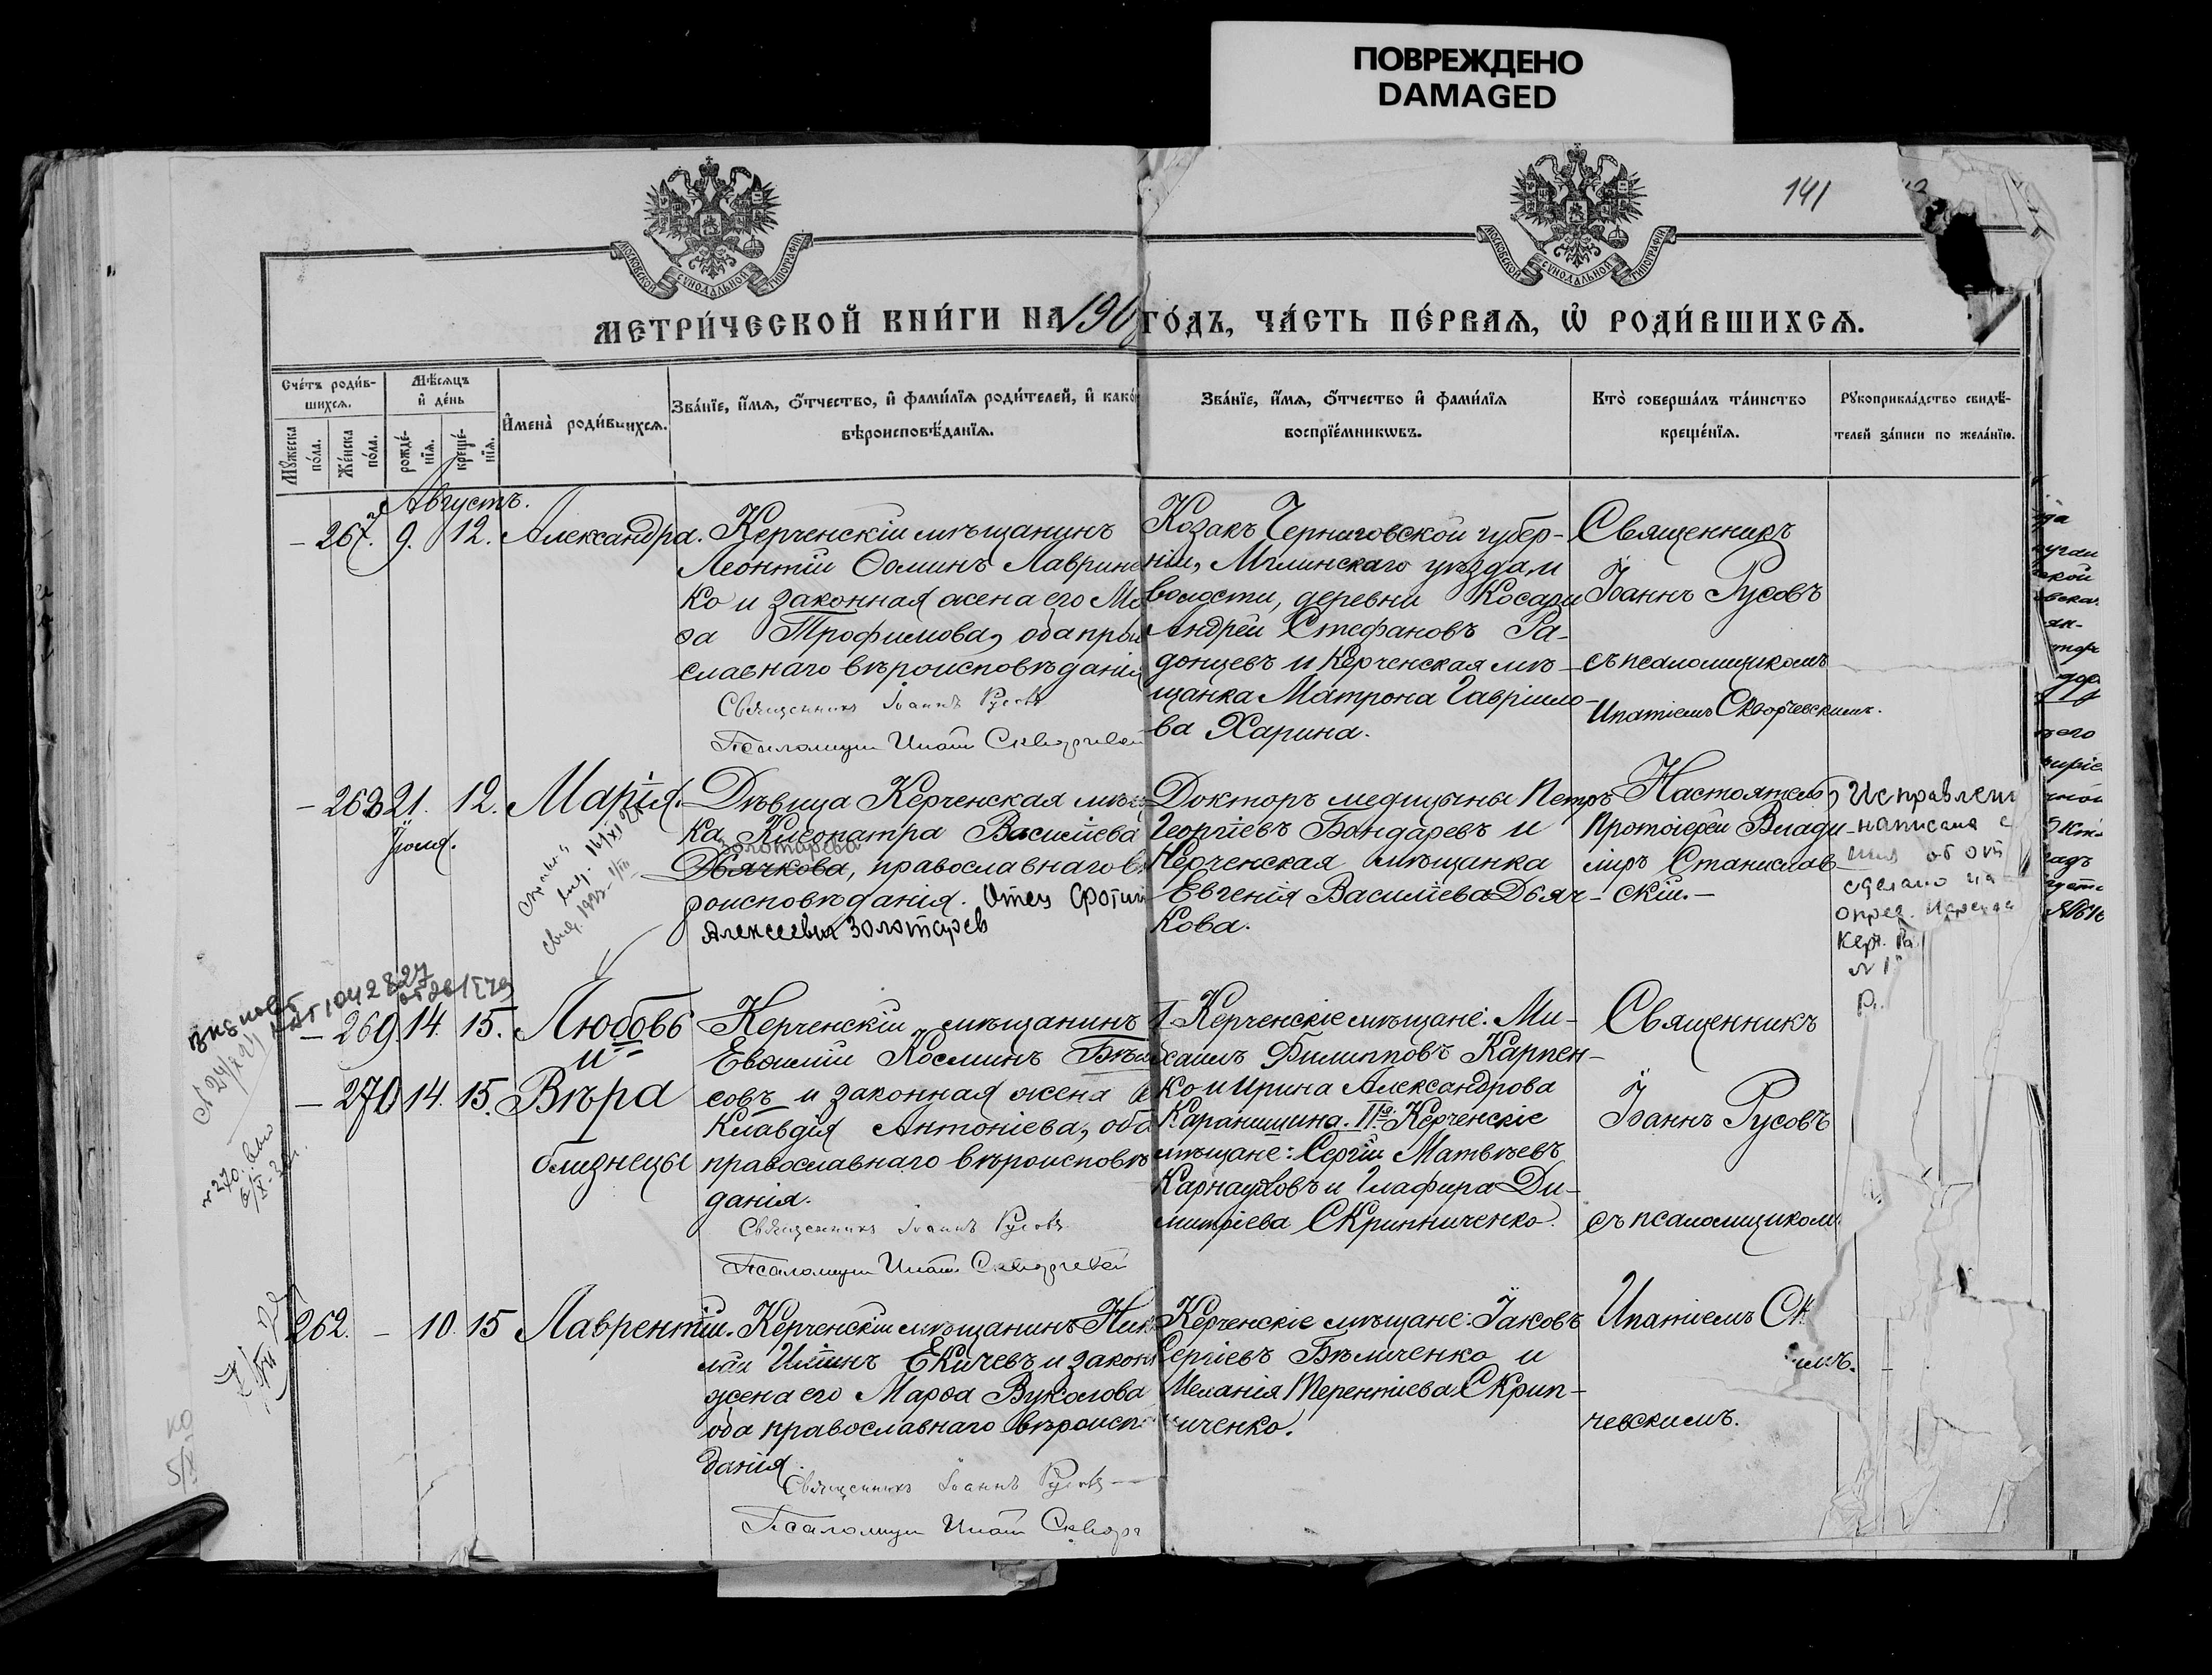 ПОВРЕЖДЕНО
DAMAGED
141
МОСКОВСКОЙ СѴНОДАЛЬНОЙ ТИПОГРАФІИ
МОСКОВСКОЙ СѴНОДАЛЬНОЙ ТИПОГРАФІИ
МЕТРИ́ЧЕСКОЙ КНИ́ГИ НА 190 ГО́ДЪ, ЧА́СТЬ ПЕ́РВАѦ, Ѡ҆ РОДИ́ВШИХСѦ.
Сче́тъ роди́в-
шихсѧ.
Мѣ́сѧцъ
и҆ де́нь
Мꙋ́жеска по́ла.
Же́нска по́ла.
рожде́-
нїѧ.
креще́-
нїѧ.
И҆мена̀ роди́вшихсѧ.
Зва́нїе, и҆́мѧ, ѻ҆́тчество, и҆ фами́лїѧ роди́телей, и҆ како́
вѣроисповѣ́данїѧ.
Зва́нїе, и҆́мѧ, ѻ҆́тчество и҆ фами́лїѧ
воспрїе́мникѡвъ.
Кто̀ соверша́лъ та́инство
креще́нїѧ.
Рꙋкоприкла́дство свидѣ́-
телей за́писи по жела́нїю.
Августъ.
– 267. 9. 12. Александра.
Керченскій мѣщанинъ
Леонтій Ѳоминъ Лаврине
ко и законная жена его Ма
ѳа Трофимова, оба прав
славнаго вѣроисповѣданія
Священникъ Іоаннъ Русовъ
Псаломщи Ипат Скворчевс
Козакъ Черниговской губер-
ніи, Мглинскаго уѣзда, М
волости, деревни Косары
Андрей Стефановъ Ра-
донцевъ и Керченская мѣ-
щанка Матрона Гавріило-
ва Харина.
Священникъ
Іоаннъ Русовъ
съ псаломщикомъ
Ипатіемъ Скворчевскимъ.
– 268 21. 12. Марія.
Іюля.
Дѣвица Керченская мѣщ
ка Клеопатра Василіева
Золотарева
Дьячкова, православнаго в
роисповѣданія. Отец Фотий
Алексеевич Золотарев
Докторъ медицины Петръ
Георгіевъ Бондаревъ и
Керченская мѣщанка
Евгенія Василіева Дьяч-
кова.
Настоятель,
Протоіерей Влади-
міръ Станислав-
скій.–
Исправлен
написана
сделано на
опред.
Керч.
– 269. 14. 15. Любовь
и
– 270 14. 15. Вѣра
близнецы
Керченскій мѣщанинъ
Евѳимій Косминъ Бѣло
совъ и законная жена е
Клавдія Антоніева, оба
православнаго вѣроисповѣ
данія.
Священникъ Іоаннъ Русовъ
Псаломщи Ипат Скворчевс
I. Керченскіе мѣщане: Ми-
хаилъ Филипповъ Карпен-
ко и Ирина Александрова
Каранишина. IIя. Керченскіе
мѣщане: Сергій Матвѣевъ
Карнауховъ и Глафира Ди-
митріева Скрипниченко.
Священникъ
Іоаннъ Русовъ
съ псаломщиком
262. – 10. 15 Лаврентій.
Керченскій мѣщанинъ Ник
лай Иліинъ Екичевъ и закон
жена его Марѳа Вуколова
оба православнаго вѣроисп
данія.
Священникъ Іоаннъ Русовъ
Псаломщи Ипат Скворч
Керченскіе мѣщане: Іаковъ
Сергіевъ Бѣличенко и
Меланія Терентіева Скрип-
ниченко.
Ипатіемъ Ск
имъ.
чевскимъ.